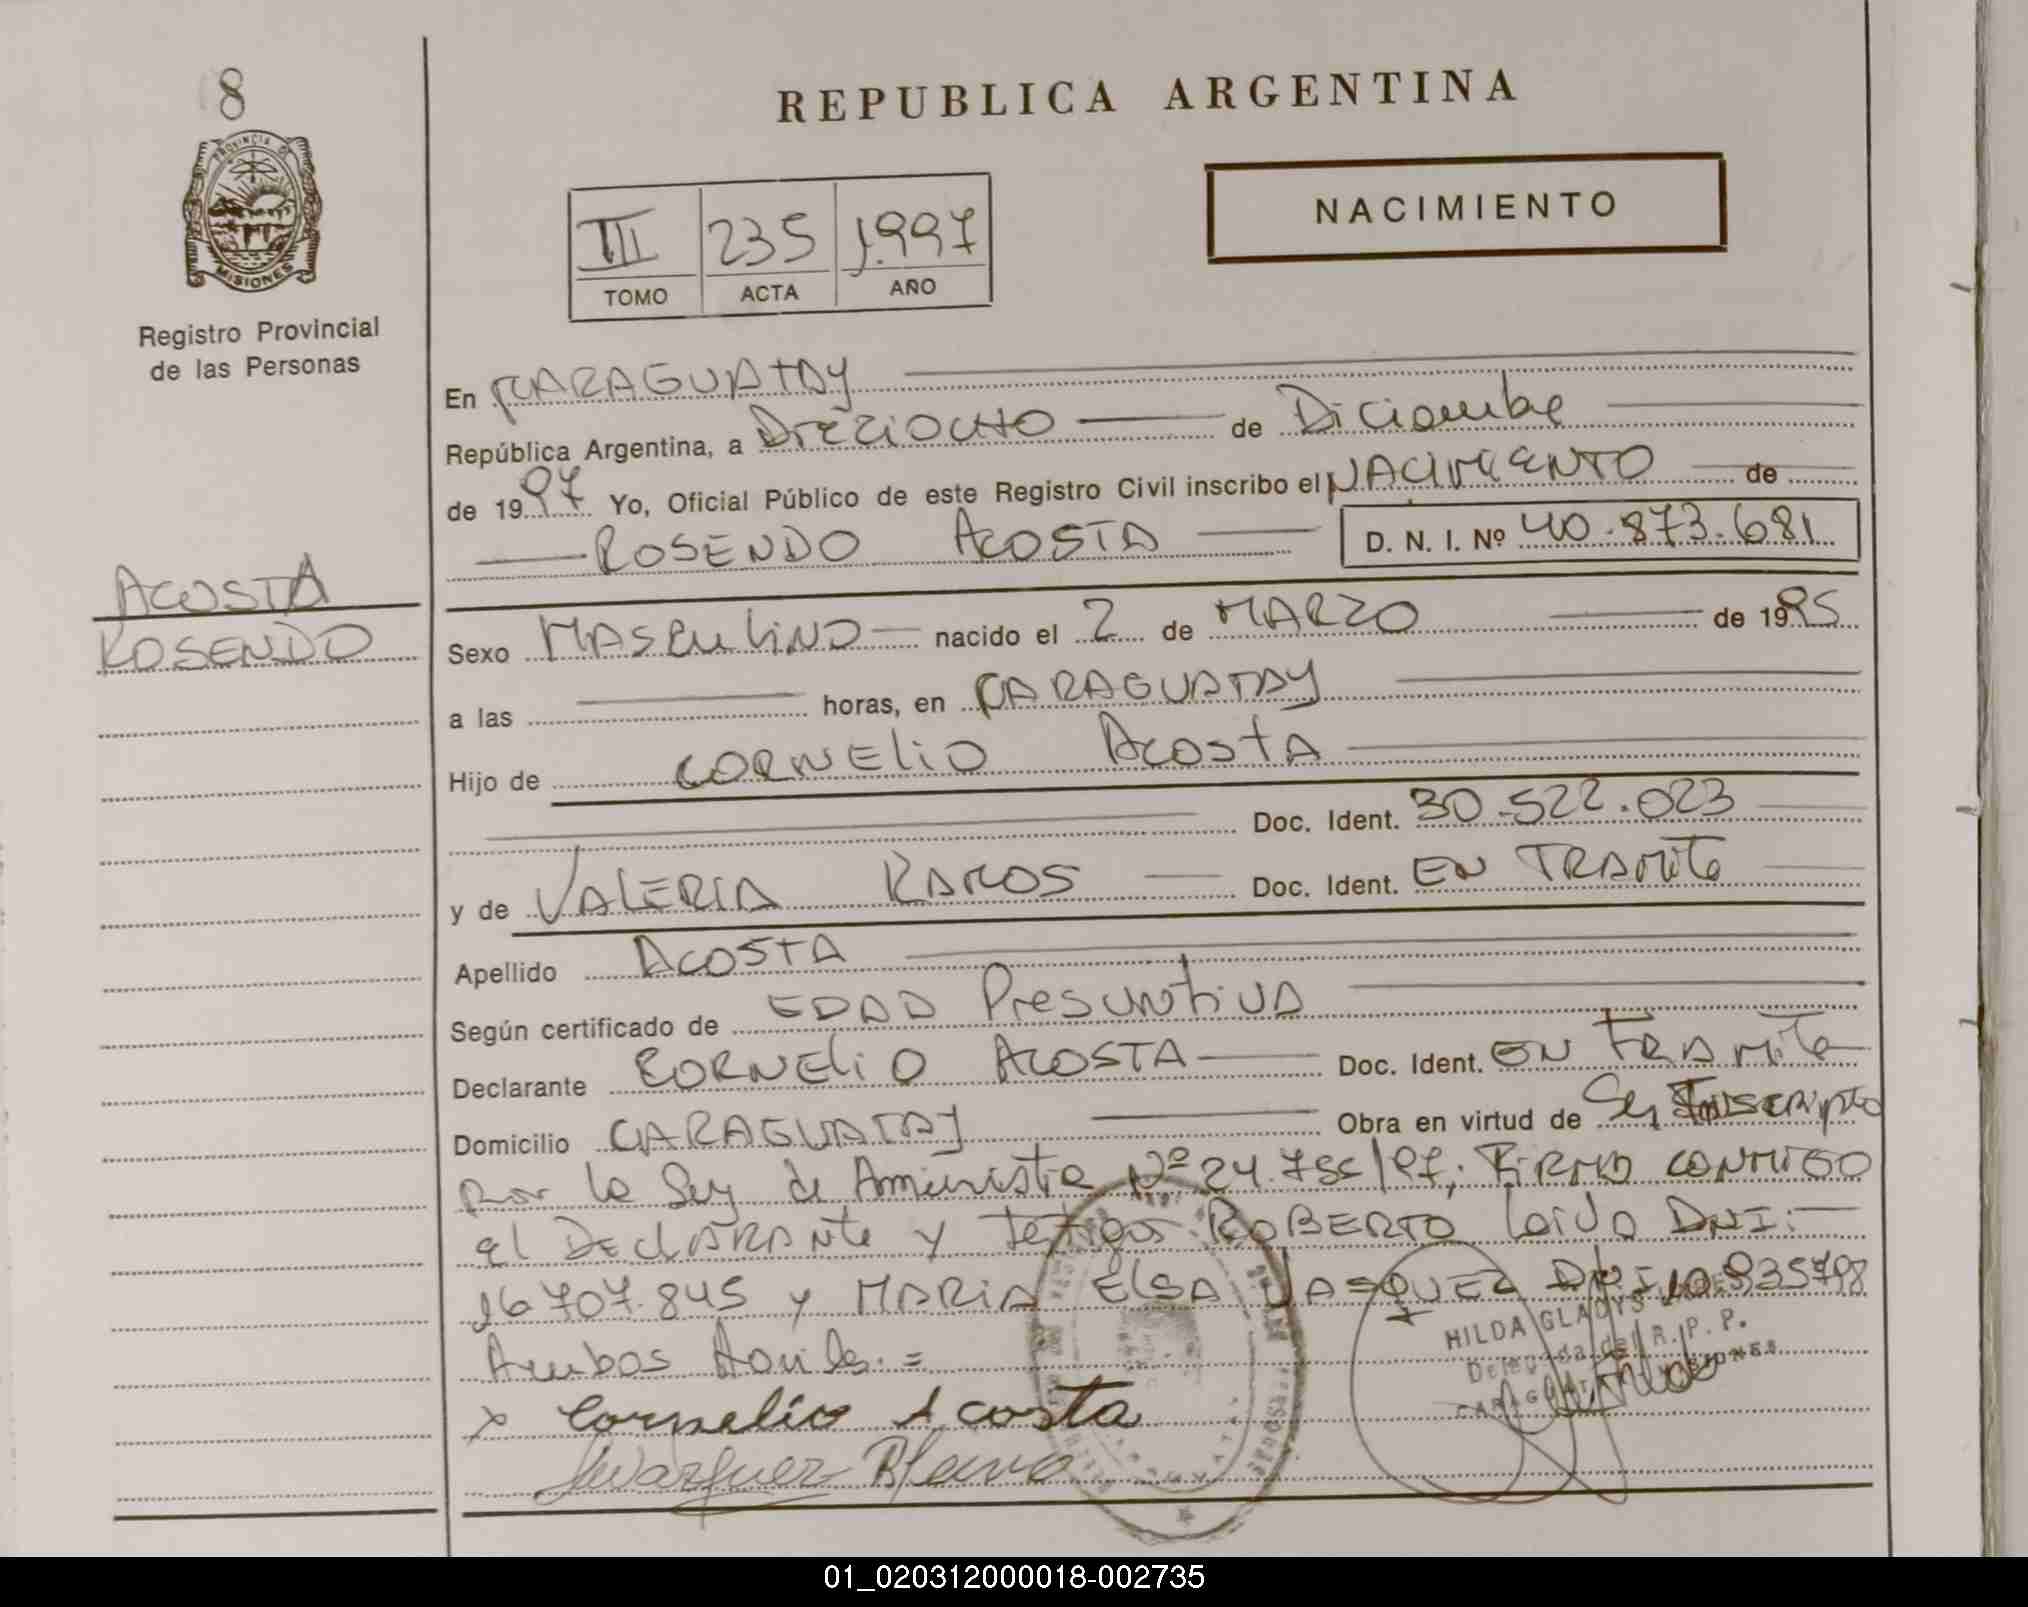 8
REPUBLICA ARGENTINA
PROVINCIA DE
MISIONES
Registro Provincial
de las Personas
III 235 1.997
TOMO ACTA AÑO
NACIMIENTO
En CARAGUATAY
República Argentina, a DIECIOCHO de Diciembre
de 1997 Yo, Oficial Público de este Registro Civil inscribo el NACIMIENTO de
ROSENDO ACOSTA D. N. I. Nº 40.873.681
ACOSTA
ROSENDO
Sexo MASCULINO nacido el 2 de MARZO de 1995
a las horas, en CARAGUATAY
Hijo de CORNELIO ACOSTA
Doc. Ident. 30.522.023
y de VALERIA RAMOS Doc. Ident. EN TRAMITE
Apellido ACOSTA
Según certificado de EDAD Presuntiva
Declarante CORNELIO ACOSTA Doc. Ident. EN TRAMITE
Domicilio CARAGUATAY Obra en virtud de Ser Inscripto
por la Ley de Aministia Nº 24.755/97; FIRMA CONMIGO
el DECLARANTE y testigos ROBERTO DNI:
16707.845 y MARIA ELSA VASQUEZ DNI 10935798
Ambos
HILDA GLADYS
Delegada del R. P. P.
CARAGUATAY MISIONES
x Cornelio Acosta
01_020312000018-002735